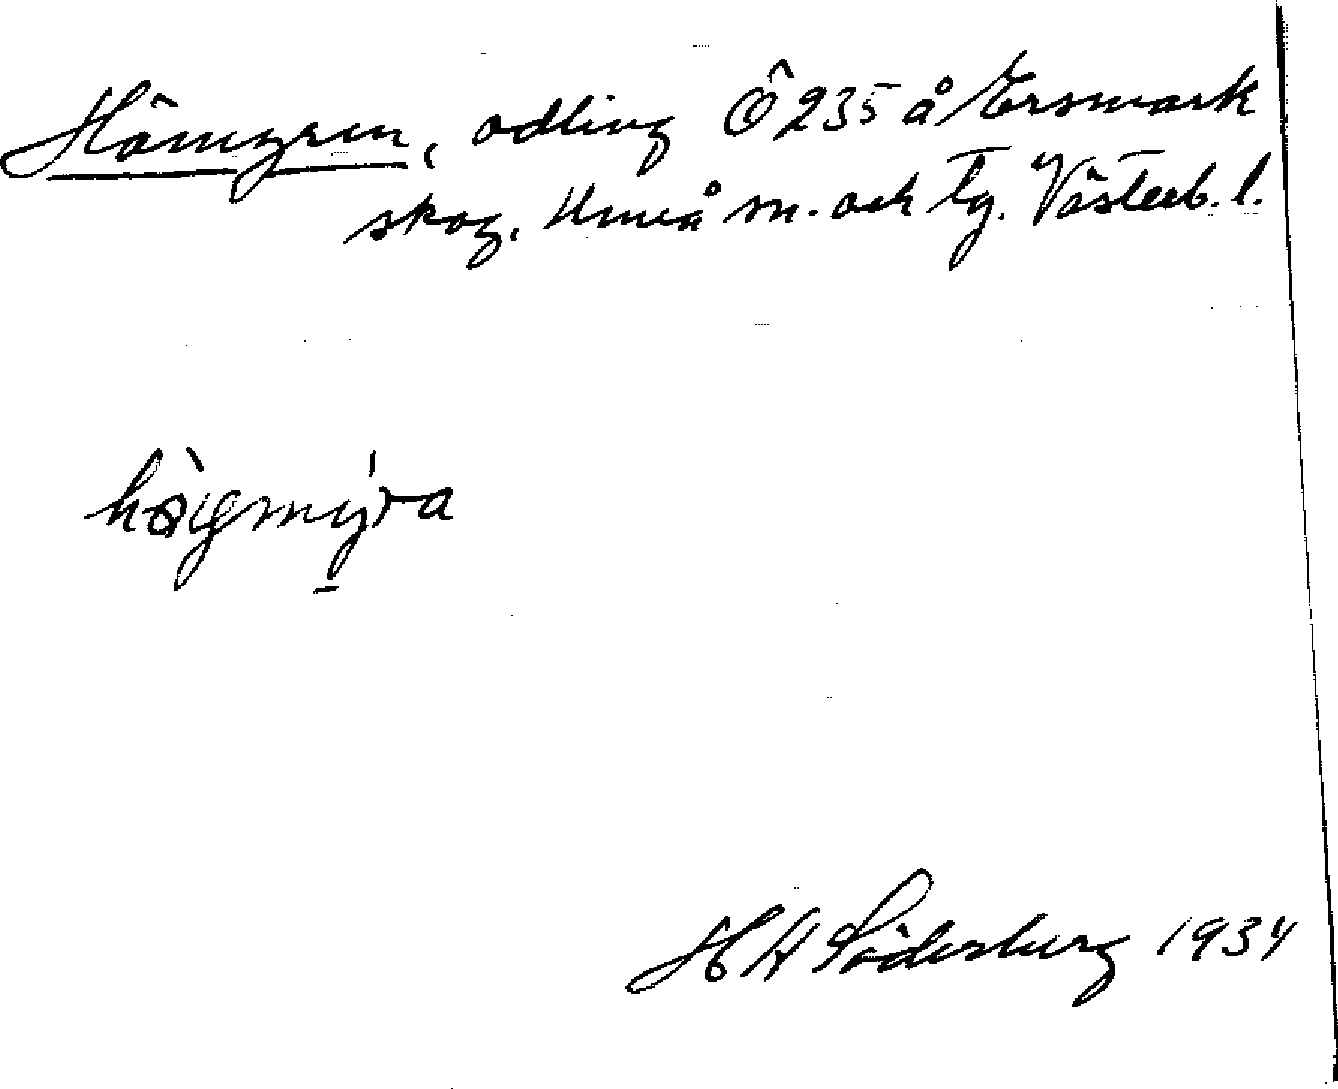 Hömyren, odling Ö 235 å Ersmark
skog, Umeå sn. och tg. Västerb. l.
hö̀igmýra
H H Söderberg 1934